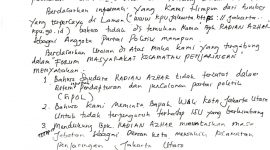 Berdasarkan informasi yang kami himpun dari sumber
yang terpercaya di Laman (www.kpu.jakarta https://jakarta.
kpu.go.id) bahwa tidak di temukan Nama Bpk RADIAN AZHAR
sebagai Anggota Partai Politik manapun
Berdasarkan Uraian di Atas maka kami yang tergabung
dalam FORUM MASYARAKAT KECAMATAN PENJARINGAN
menyatakan
1. Bahwa Saudara RADIAN AZHAR tidak tercatat dalam
dan partai politik
2. Bahwa Kami Meminta Bapak WALI Kota Jakarta Utara
Untuk tidak terpengaruh terhadap ISU yang berkembang
3. Mendukung Bpk RADIAN AZHAR
Jabatan sebagai Dewan Kota Kecamatan
Penjaringan Jakarta Utara